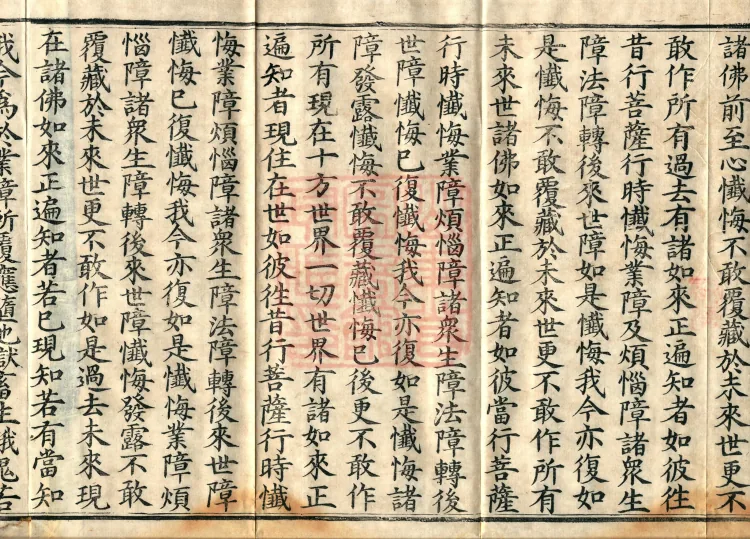 諸佛前至心懺悔不敢覆藏於未來世更不
敢作所有過去有諸如來正遍知者如彼徃
昔行菩薩行時懺悔業障及煩惱障諸衆生
障法障轉後來世障如是懺悔我今亦復如
是懺悔不敢覆藏於未來世更不敢作所有
未來世諸佛如來正遍知者如彼當行菩薩
行時懺悔業障煩惱障諸衆生障法障轉後
世障懺悔已復懺悔我今亦復如是懺悔諸
障發露懺悔不敢覆藏懺悔已後更不敢作
所有現在十方世界一切世界有諸如來正
遍知者現住在世如彼徃昔行菩薩行時懺
悔業障煩惱障諸衆生障法障轉後來世障
懺悔已復懺悔我今亦復如是懺悔業障煩
惱障諸衆生障轉後來世障懺悔發露不敢
覆藏於未來世更不敢作如是過去未來現
在諸佛如來正遍知者若已現知若有當知
我今爲於業障所覆應墮地獄畜生餓鬼若